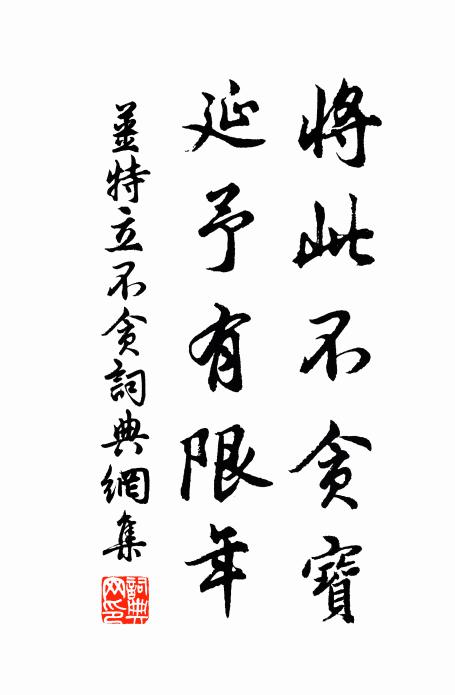 將此不貪寶
延予有限年
姜特立不貪詞典網集
詞典網印